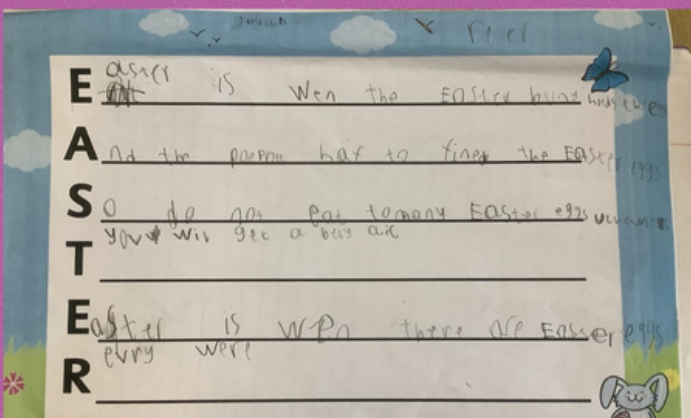 Jovan
E aster is Wen the EASter buny hids the
A nd the poeple haf to fined the EASter eggs
S o do not eat tomany EASter eggs
you wil get a bely aic
T
E aster is wen there are EASter eggs
evry were
R